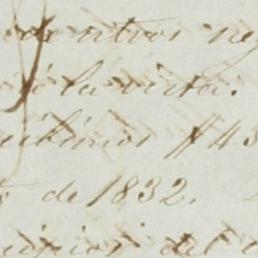 de otros ne
á la vista.
cibimos $43
de 1832.
del